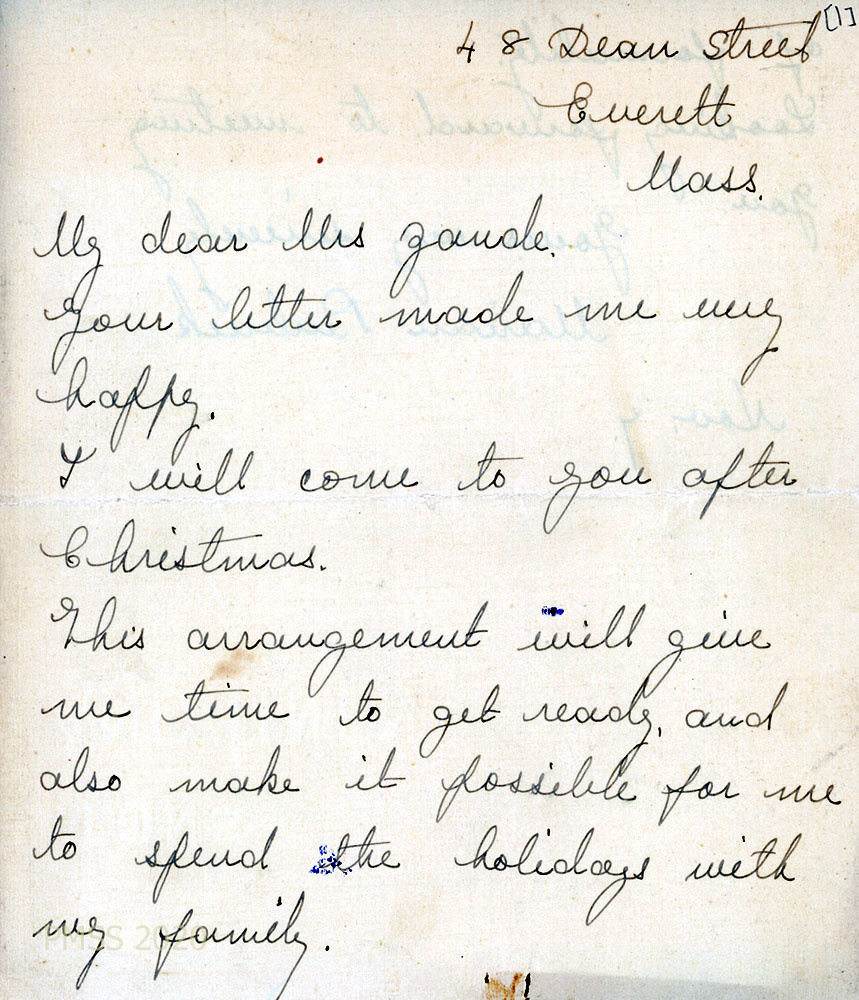 [1]
48 Dean Street
Everett
Mass.
My dear Mrs Zande.
Your letter made me very
happy.
I will come to you after
Christmas.
This arrangement will give
me time to get ready, and
also make it possible for me
to spend the holidays with
my family.
PMSS 2020